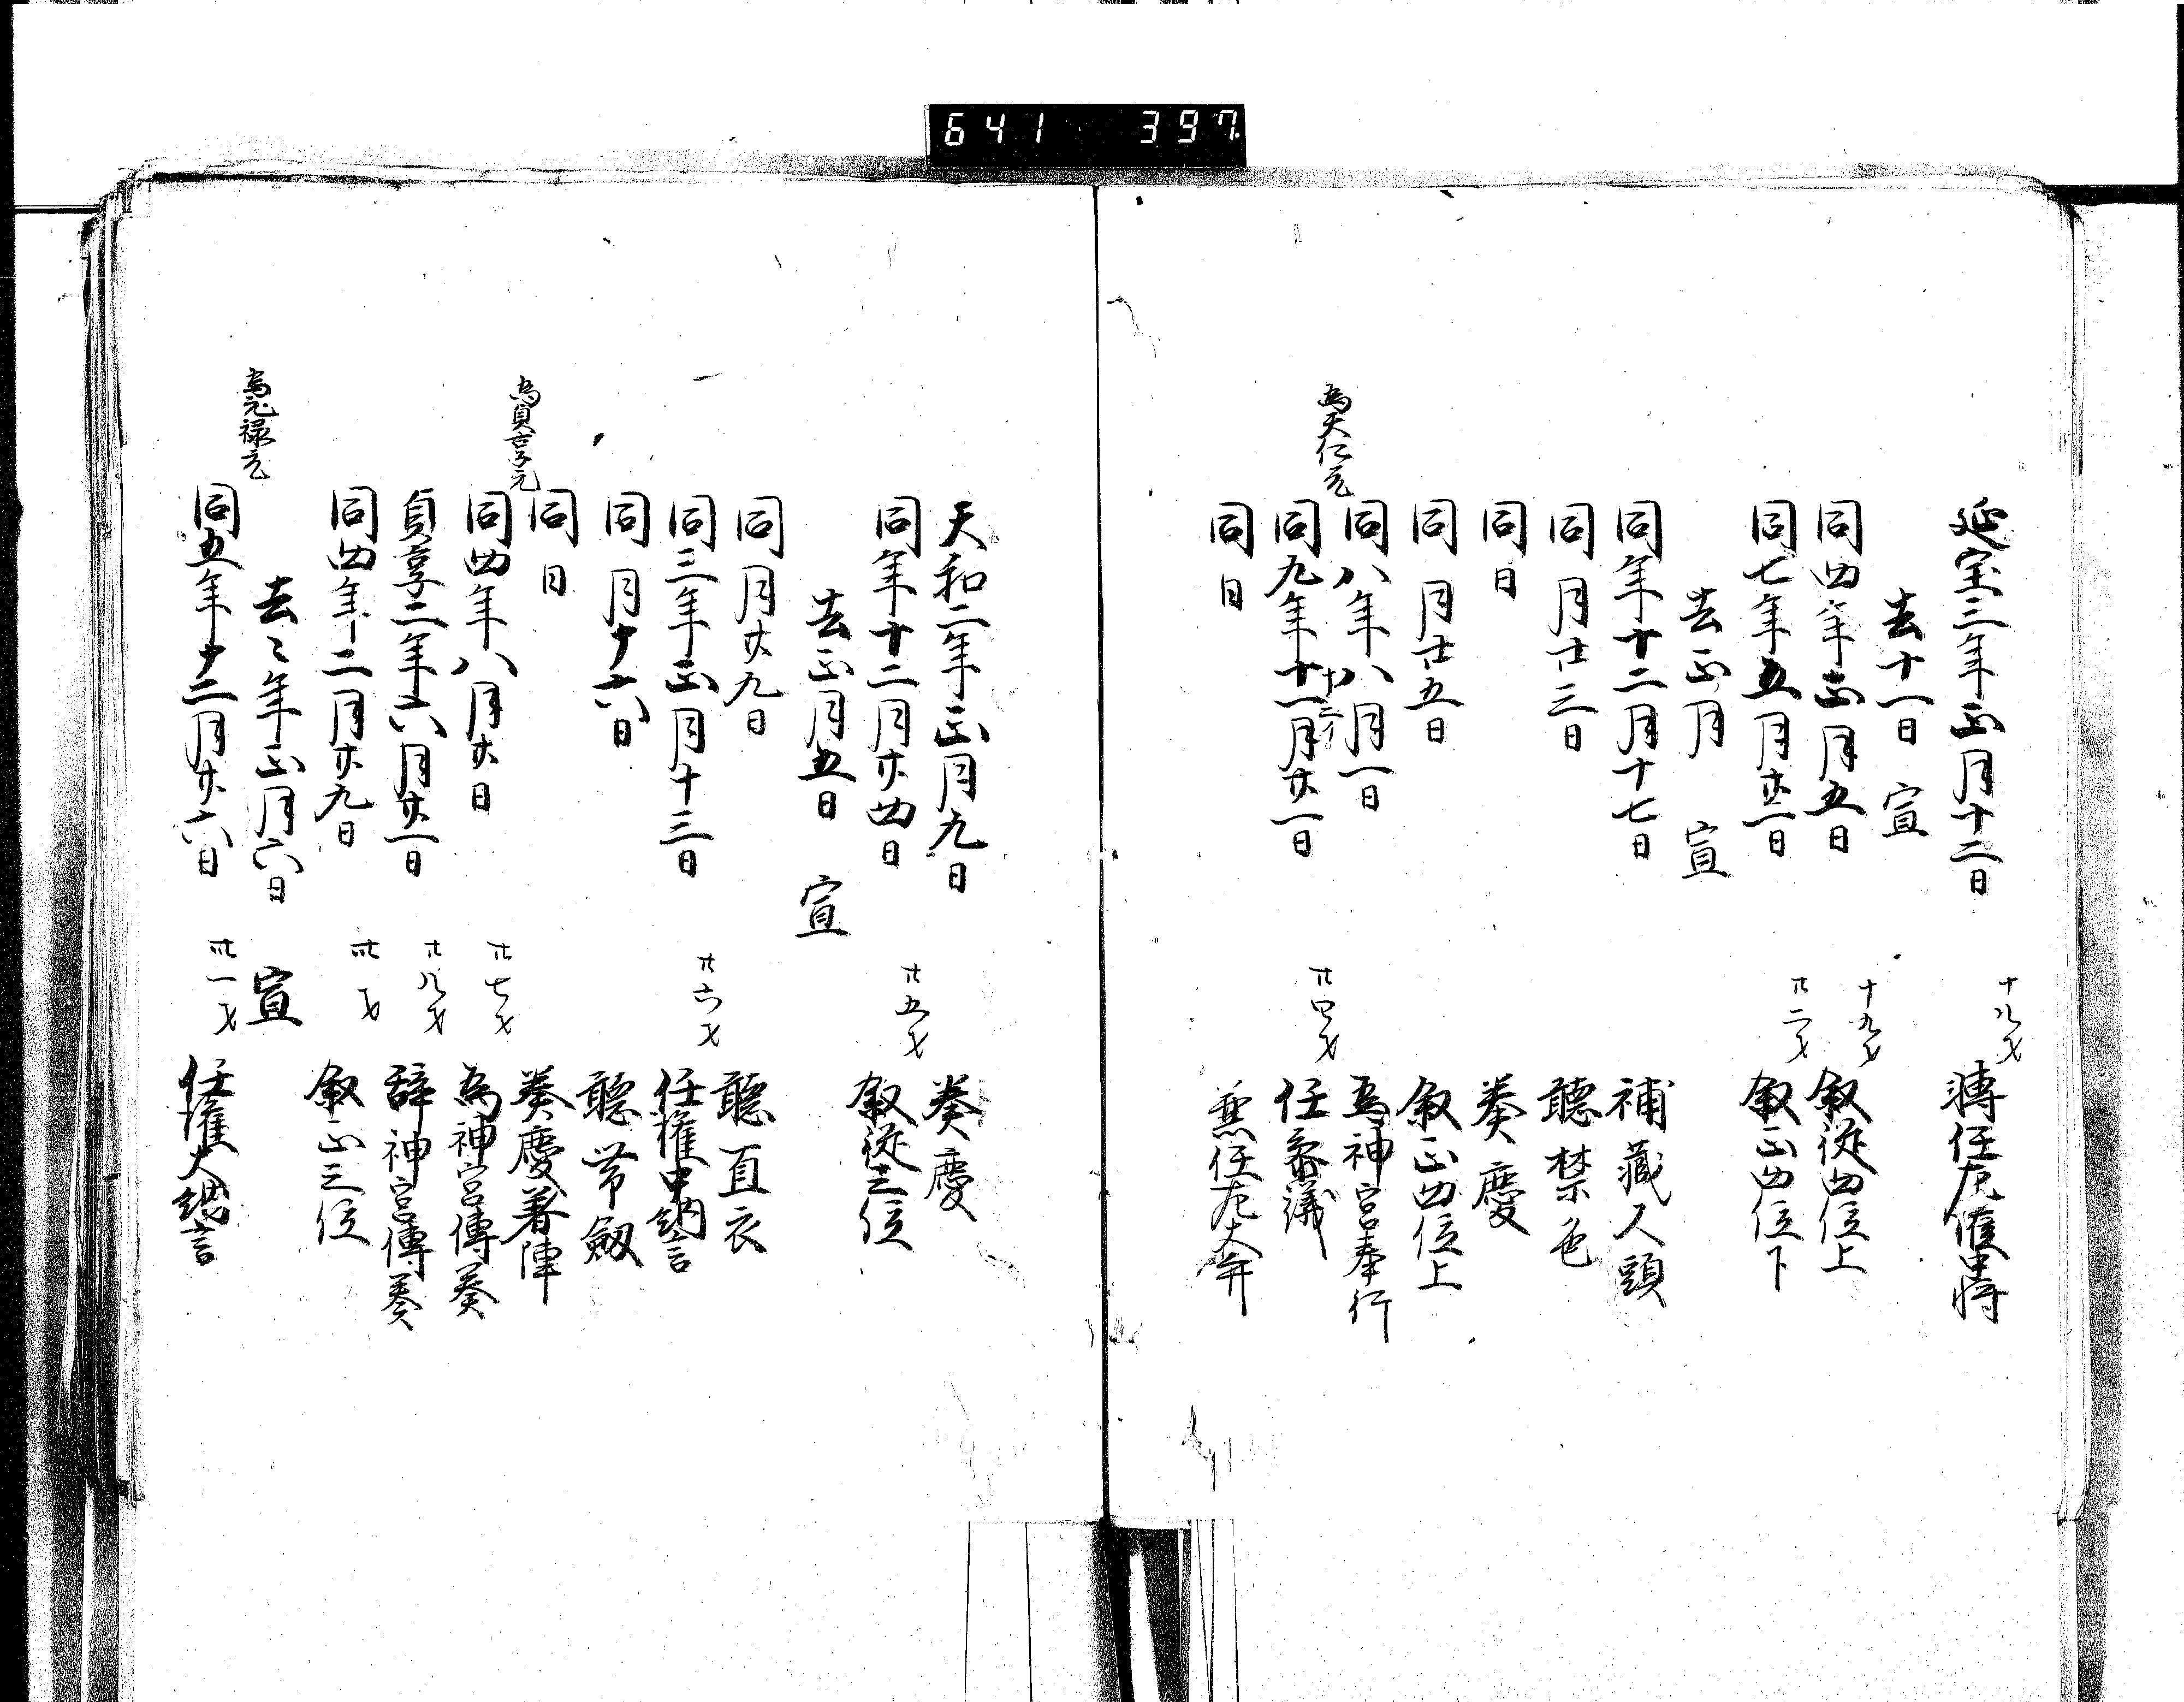 641 397
延宝三年正月十二日 十八才 轉任左権中将
去十一日 宣
同四年正月五日 十九才 叙従四位上
同七年五月廿一日 廿二才 叙正四位下
去正月 宣
同年十二月十七日 補蔵人頭
同月廿三日 聴禁色
同日 奏慶
同月廿五日 叙正四位上
同八年八月一日 為神宮奉行
為天仁元
同九年十一月廿一日 廿四才 任参議
同日 兼任左大弁
天和二年正月九日 奏慶
同年十二月廿四日 廿五才 叙従三位
去正月五日 宣
同月廿九日 聴直衣
同三年正月十三日 廿六才 任権中納言
同月十六日 聴帯剱
同日 奏慶着陣
為貞享元
同四年八月廿日 廿七才 為神宮傳奏
貞享二年六月廿一日 廿八才 辞神宮傳奏
同四年十二月廿九日 卅才 叙正三位
去々年正月六日 宣
為元禄元
同五年十二月廿六日 卅一才 任権大納言